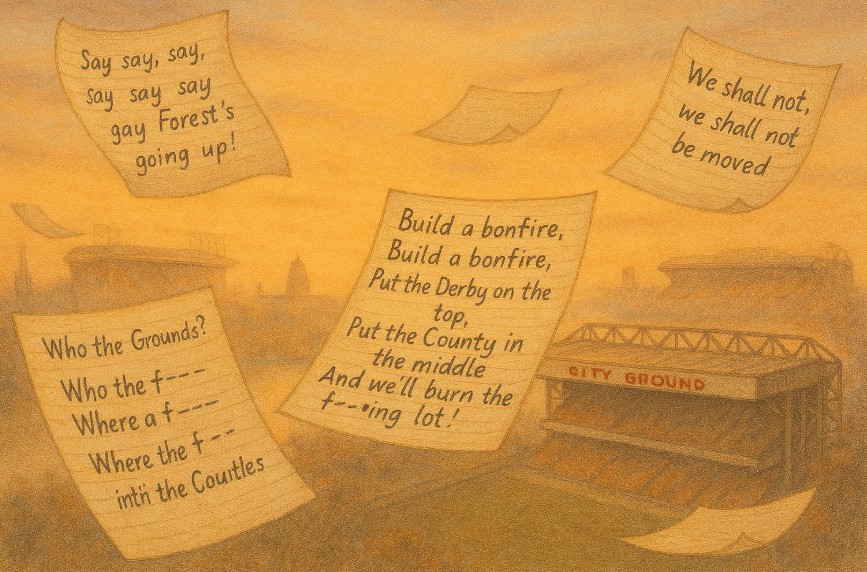 Say say, say,
say say say
gay Forest's
going up!
We shall not,
we shall not
be moved
Build a bonfire,
Build a bonfire,
Put the Derby on the
top,
Put the County in
the middle
And we'll burn the
f--•ing lot!
Who the Grounds?
Who the f---
Where a f---
Where the f---
in the Couitles
CITY GROUND